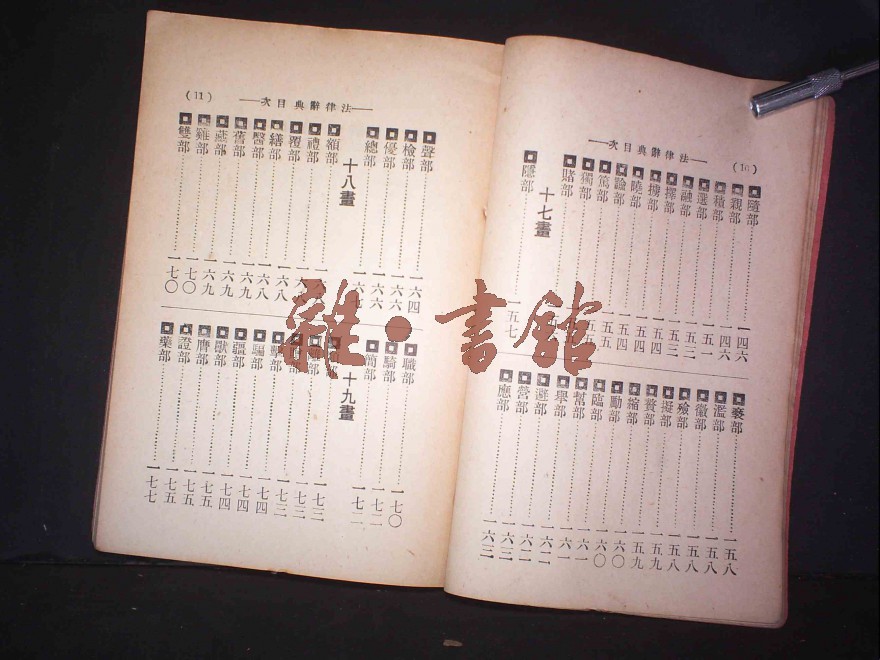 法律辭典目次
(10)
隨部 一四六
親部 一四六
積部 一五一
選部 一五三
融部 一五三
擇部 一五四
據部 一五四
曉部 一五四
踰部 一五五
篤部
獨部
賭部
十七畫
隱部 一五七
褻部 一五八
濫部 一五八
徽部 一五八
殮部 一五八
擬部 一五九
贅部 一五九
縮部 一六〇
勵部 一六〇
臨部 一六一
幫部 一六一
舉部 一六一
避部 一六二
營部 一六二
應部 一六三
法律辭典目次
(11)
聲部 一六四
檢部 一六六
優部 一六六
總部 一六七
十八畫
額部
禮部
覆部 一六八
繕部 一六八
醫部 一六九
舊部 一六九
雖部 一七〇
雙部 一七〇
職部 一七〇
騎部 一七二
簡部 一七二
十九畫
騙部 一七四
疆部 一七四
獸部 一七五
贋部 一七五
證部 一七五
藥部 一七七
雜・書館